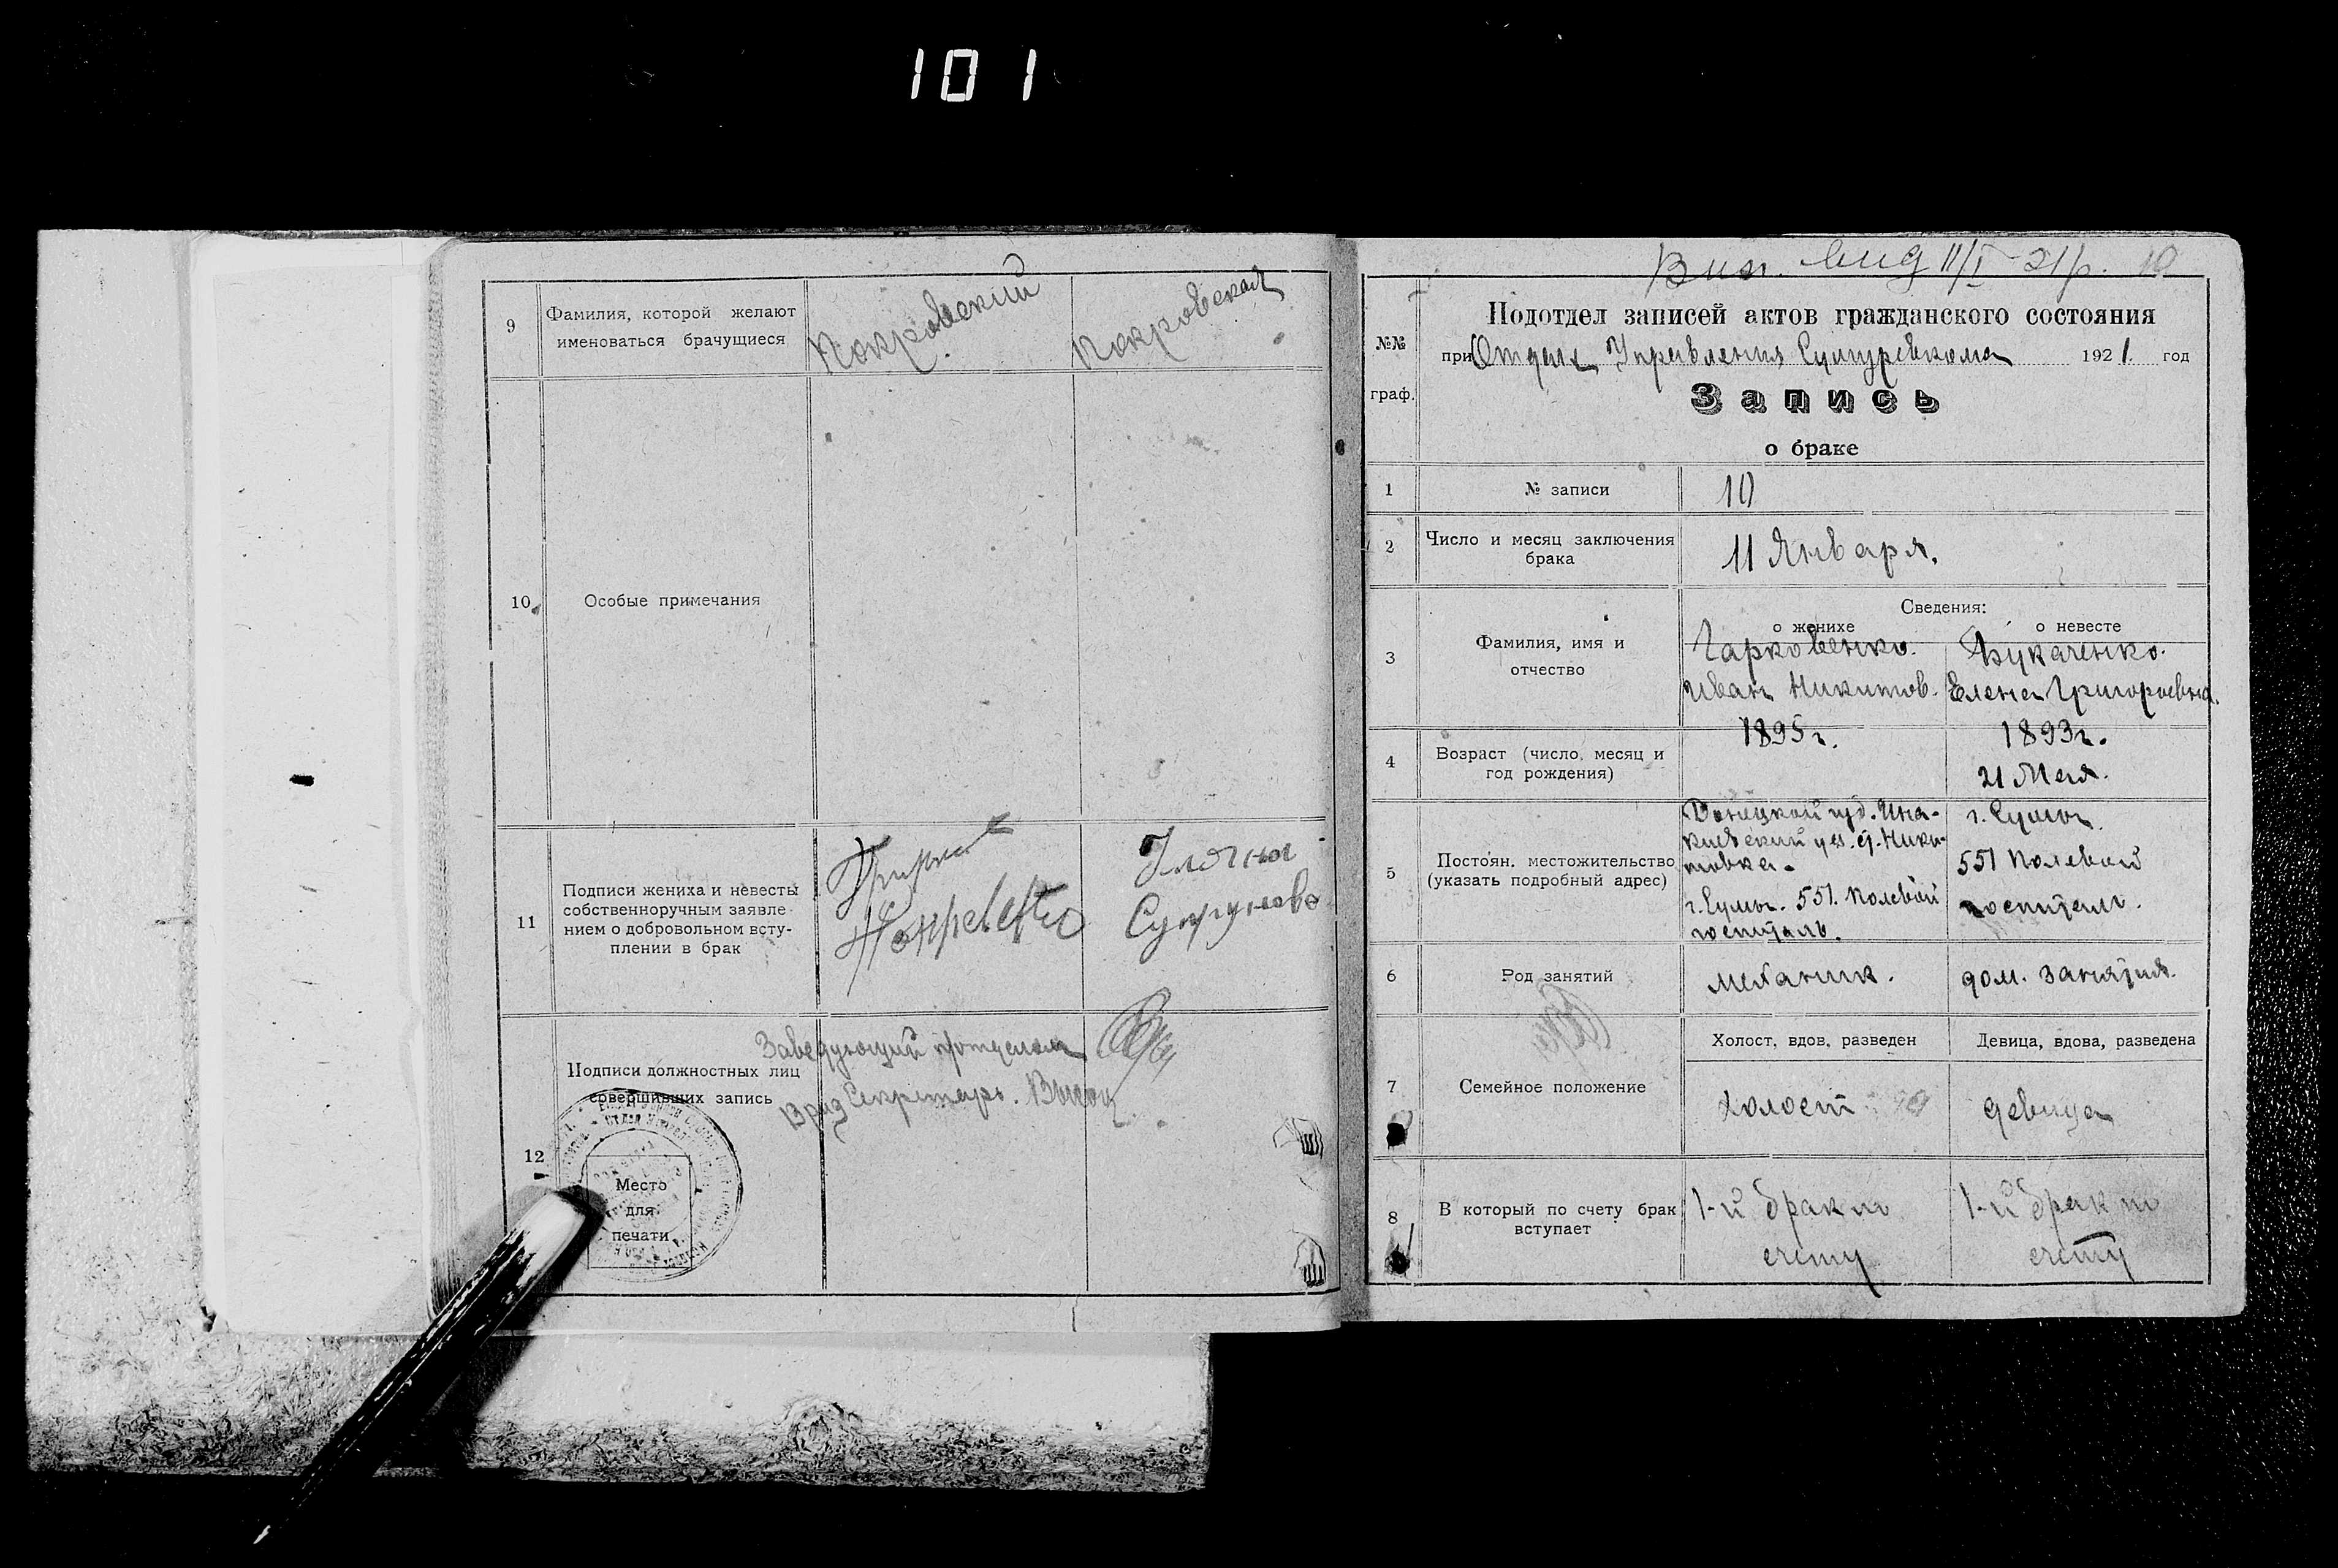 101
9
Фамилия, которой желают
именоваться брачущиеся
Покровский
Покровская
10
Особые примечания
11
Подписи жениха и невесты
собственноручным заявле
нием о добровольном всту-
плении в брак
Супрунова
12
Подписи должностных лиц
совершивших запись
Заведующий
Секретарь.
Место
для
печати
11/I-21р. 10
№№
граф.
Подотдел записей актов гражданского состояния
при Отделе Управления Сумуревкома 1921. год
Запись
о браке
1
№ записи
10
2
Число и месяц заключения
брака
11 Января.
Сведения:
о женихе
о невесте
3
Фамилия, имя и
отчество
Гарковенко.
Иван Никитов.
Елена Григорьевна.
4
Возраст (число месяц и
год рождения)
1895 г.
1893 г.
21 Мая.
5
Постоян. местожительство
(указать подробный адрес)
Донецкой губ.
Ники-
товка.
г. Сумы. 551. Полевой
госпиталь.
г. Сумы.
551 Полевой
госпиталь.
6
Род занятий
механик.
дом. занятия.
7
Семейное положение
Холост, вдов, разведен
Девица, вдова, разведена
холост
девица
8
В который по счету брак
вступает
1-й брак по
счету
1-й брак по
счету